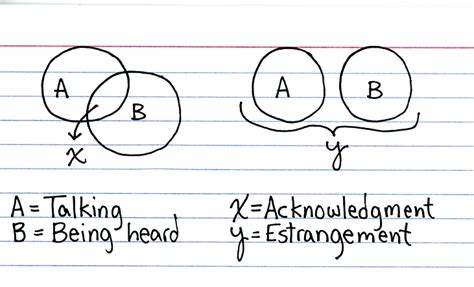 A B A B
x y
A = Talking x = Acknowledgment
B = Being heard y = Estrangement